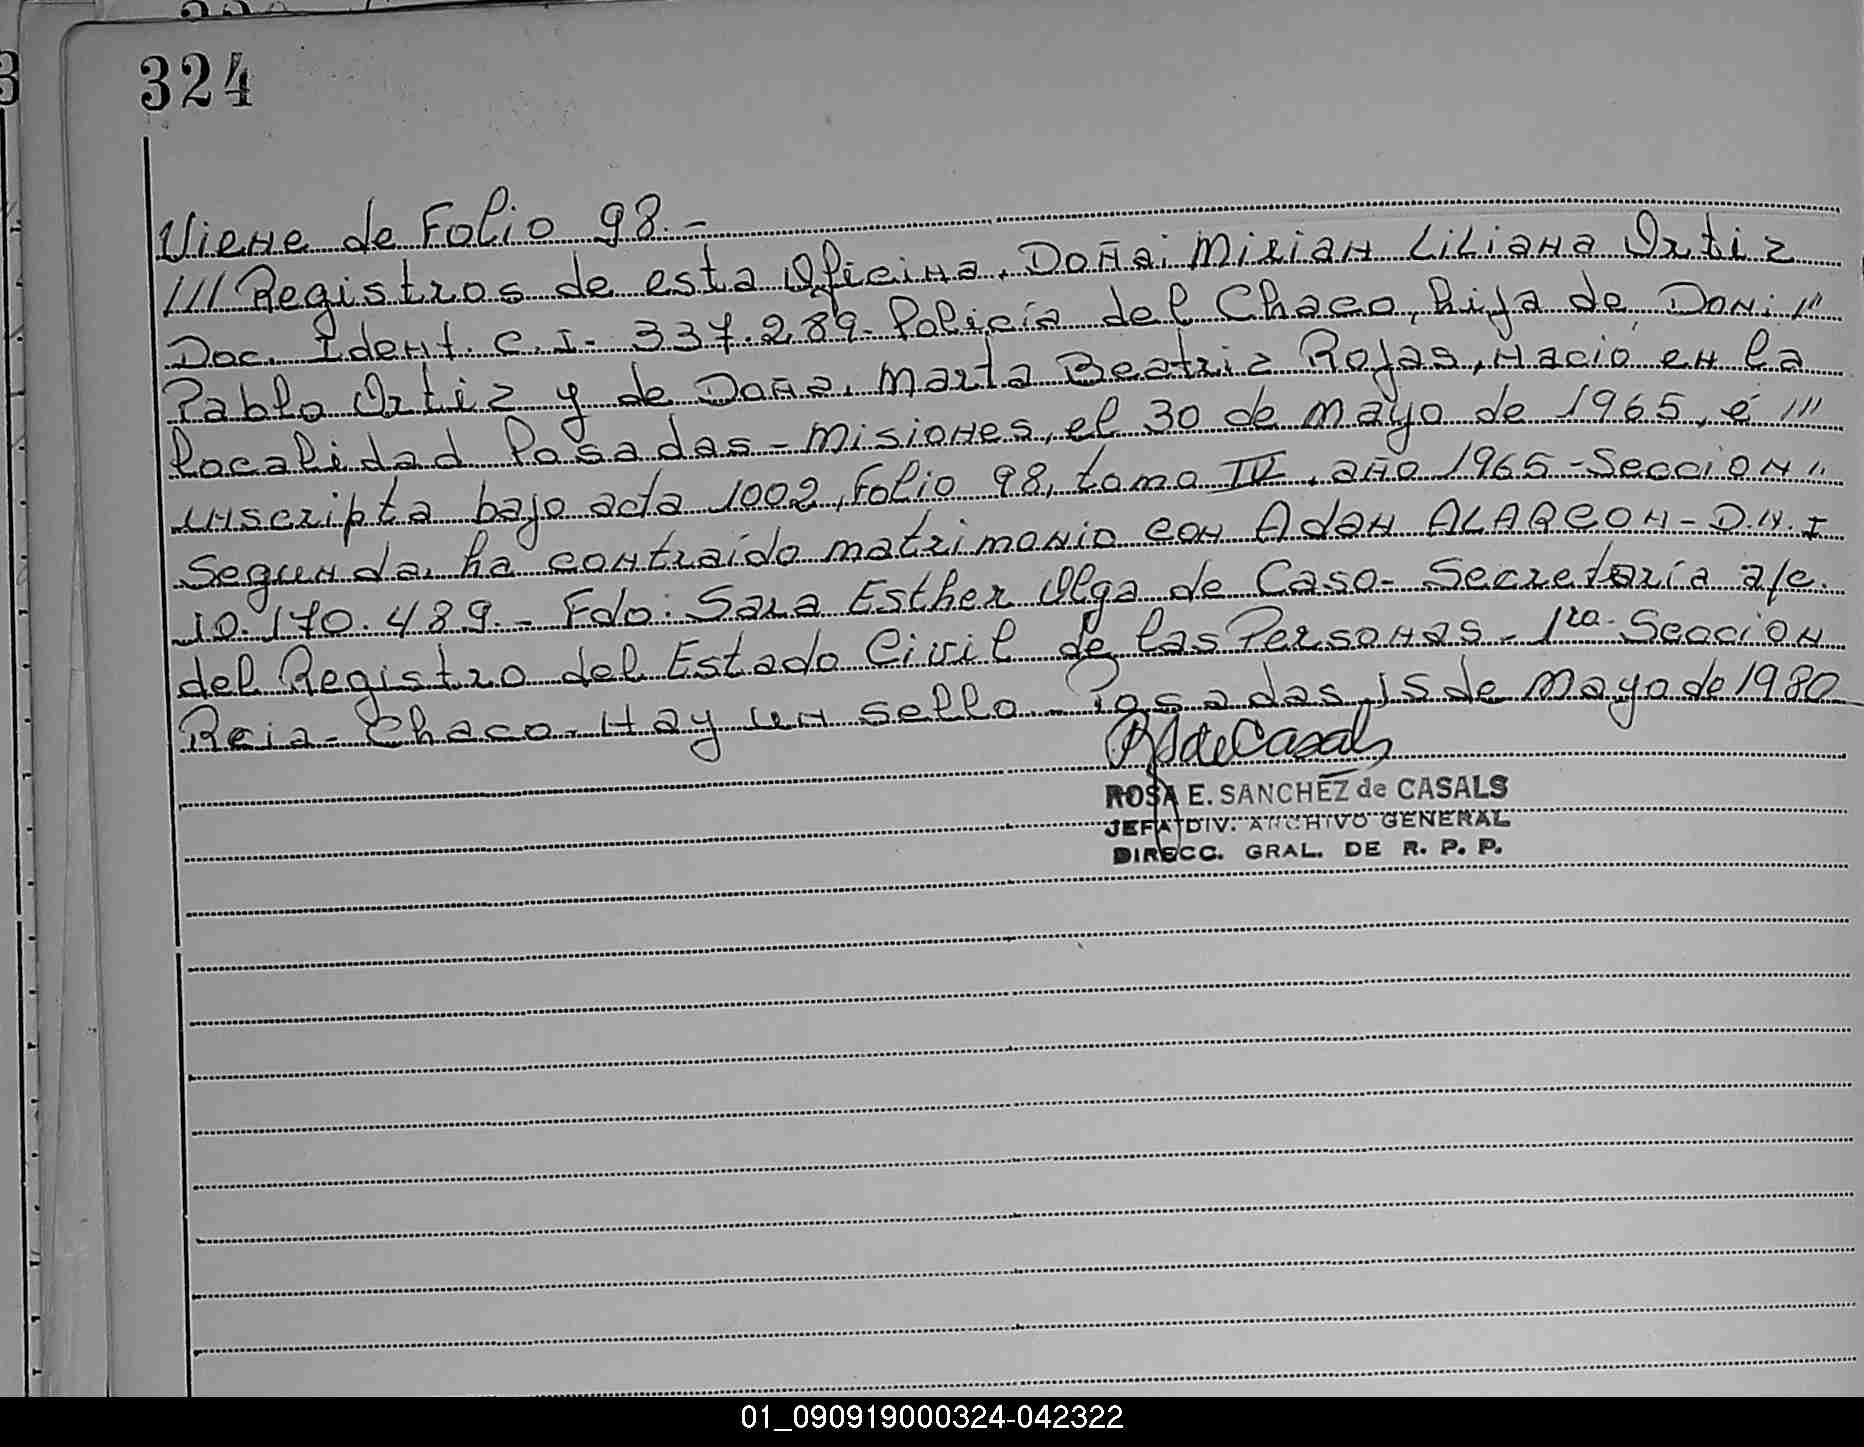 324
Viene de Folio 98.-
/// Registros de esta Oficina, Doña: Mirian Liliana Ortiz
Doc. Ident. C.I- 337.289- Policía del Chaco, hija de Don: "
Pablo Ortiz y de Doña, Marta Beatriz Rojas, nació en la
localidad Posadas - Misiones, el 30 de mayo de 1965, é ///
inscripta bajo acta 1002, Folio 98, tomo IV, año 1965 - Seccion "
Segunda, ha contraído matrimonio con Adan ALARCON - D.N.I
10.170.489.- Fdo: Sara Esther Olga de Caso- Secretaria a/c.
del Registro del Estado Civil de las Personas - 1ra. Seccion
Rcia- Chaco. Hay un sello - Posadas, 15 de Mayo de 1980
RSdeCasals
ROSA E. SANCHEZ de CASALS
JEFA DIV. ARCHIVO GENERAL
DIRECC. GRAL. DE R. P. P.
01_090919000324-042322